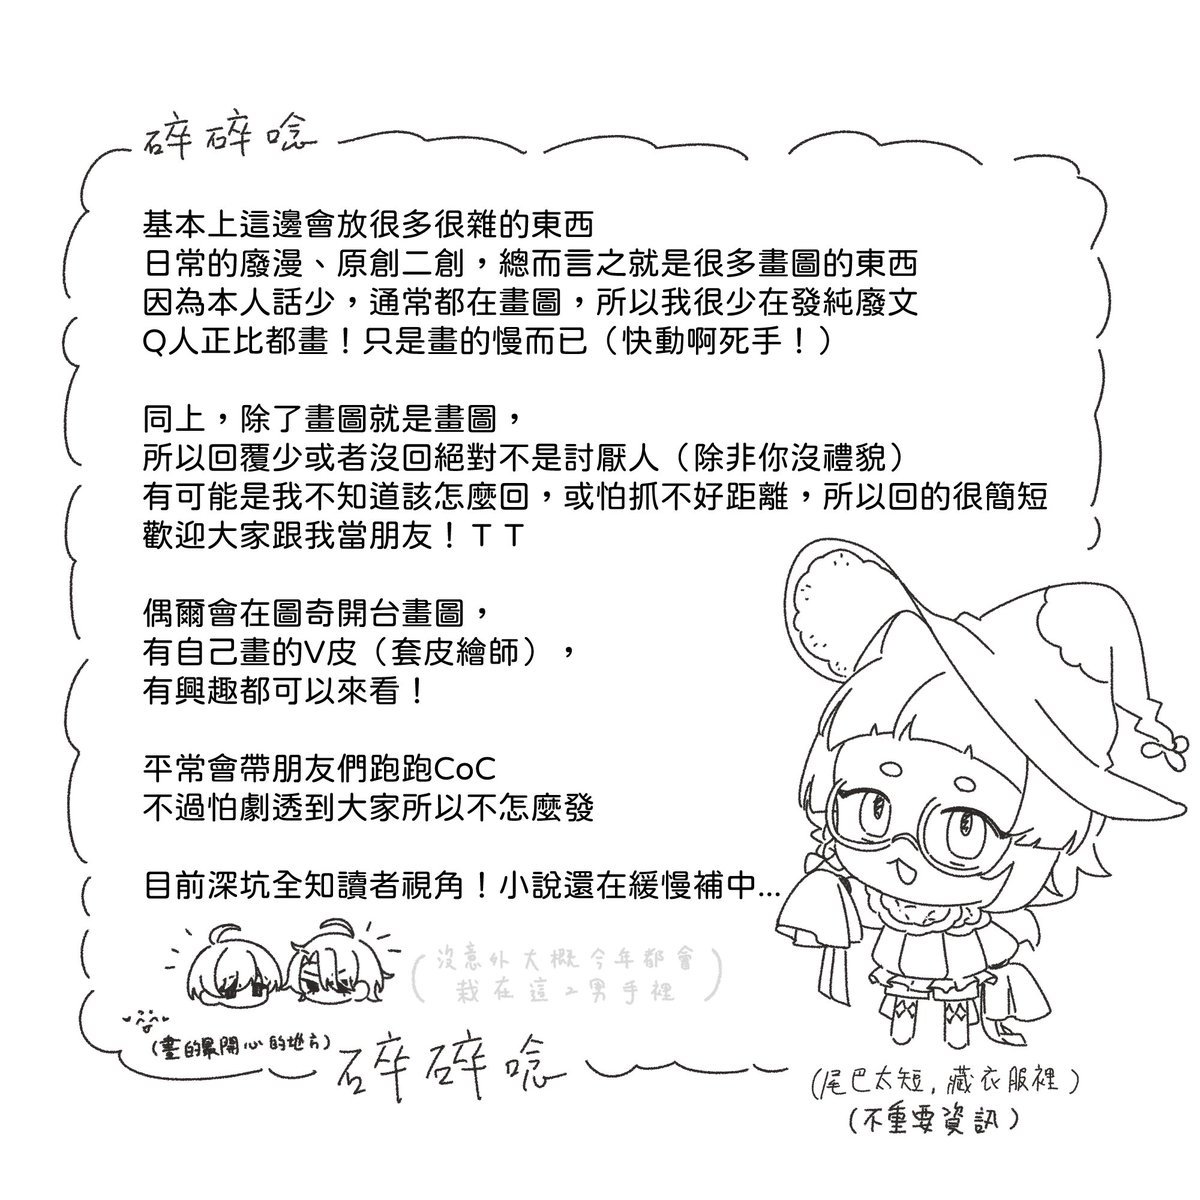 碎碎唸
基本上這邊會放很多很雜的東西
日常的廢漫、原創二創，總而言之就是很多畫圖的東西
因為本人話少，通常都在畫圖，所以我很少在發純廢文
Q人正比都畫！只是畫的慢而已（快動啊死手！）
同上，除了畫圖就是畫圖，
所以回覆少或者沒回絕對不是討厭人（除非你沒禮貌）
有可能是我不知道該怎麼回，或怕抓不好距離，所以回的很簡短
歡迎大家跟我當朋友！ＴＴ
偶爾會在圖奇開台畫圖，
有自己畫的V皮（套皮繪師），
有興趣都可以來看！
平常會帶朋友們跑跑CoC
不過怕劇透到大家所以不怎麼發
目前深坑全知讀者視角！小說還在緩慢補中...
（沒意外大概今年都會
栽在這2男手裡）
（畫的最開心的地方）
碎碎唸
（尾巴太短，藏衣服裡）
（不重要資訊）